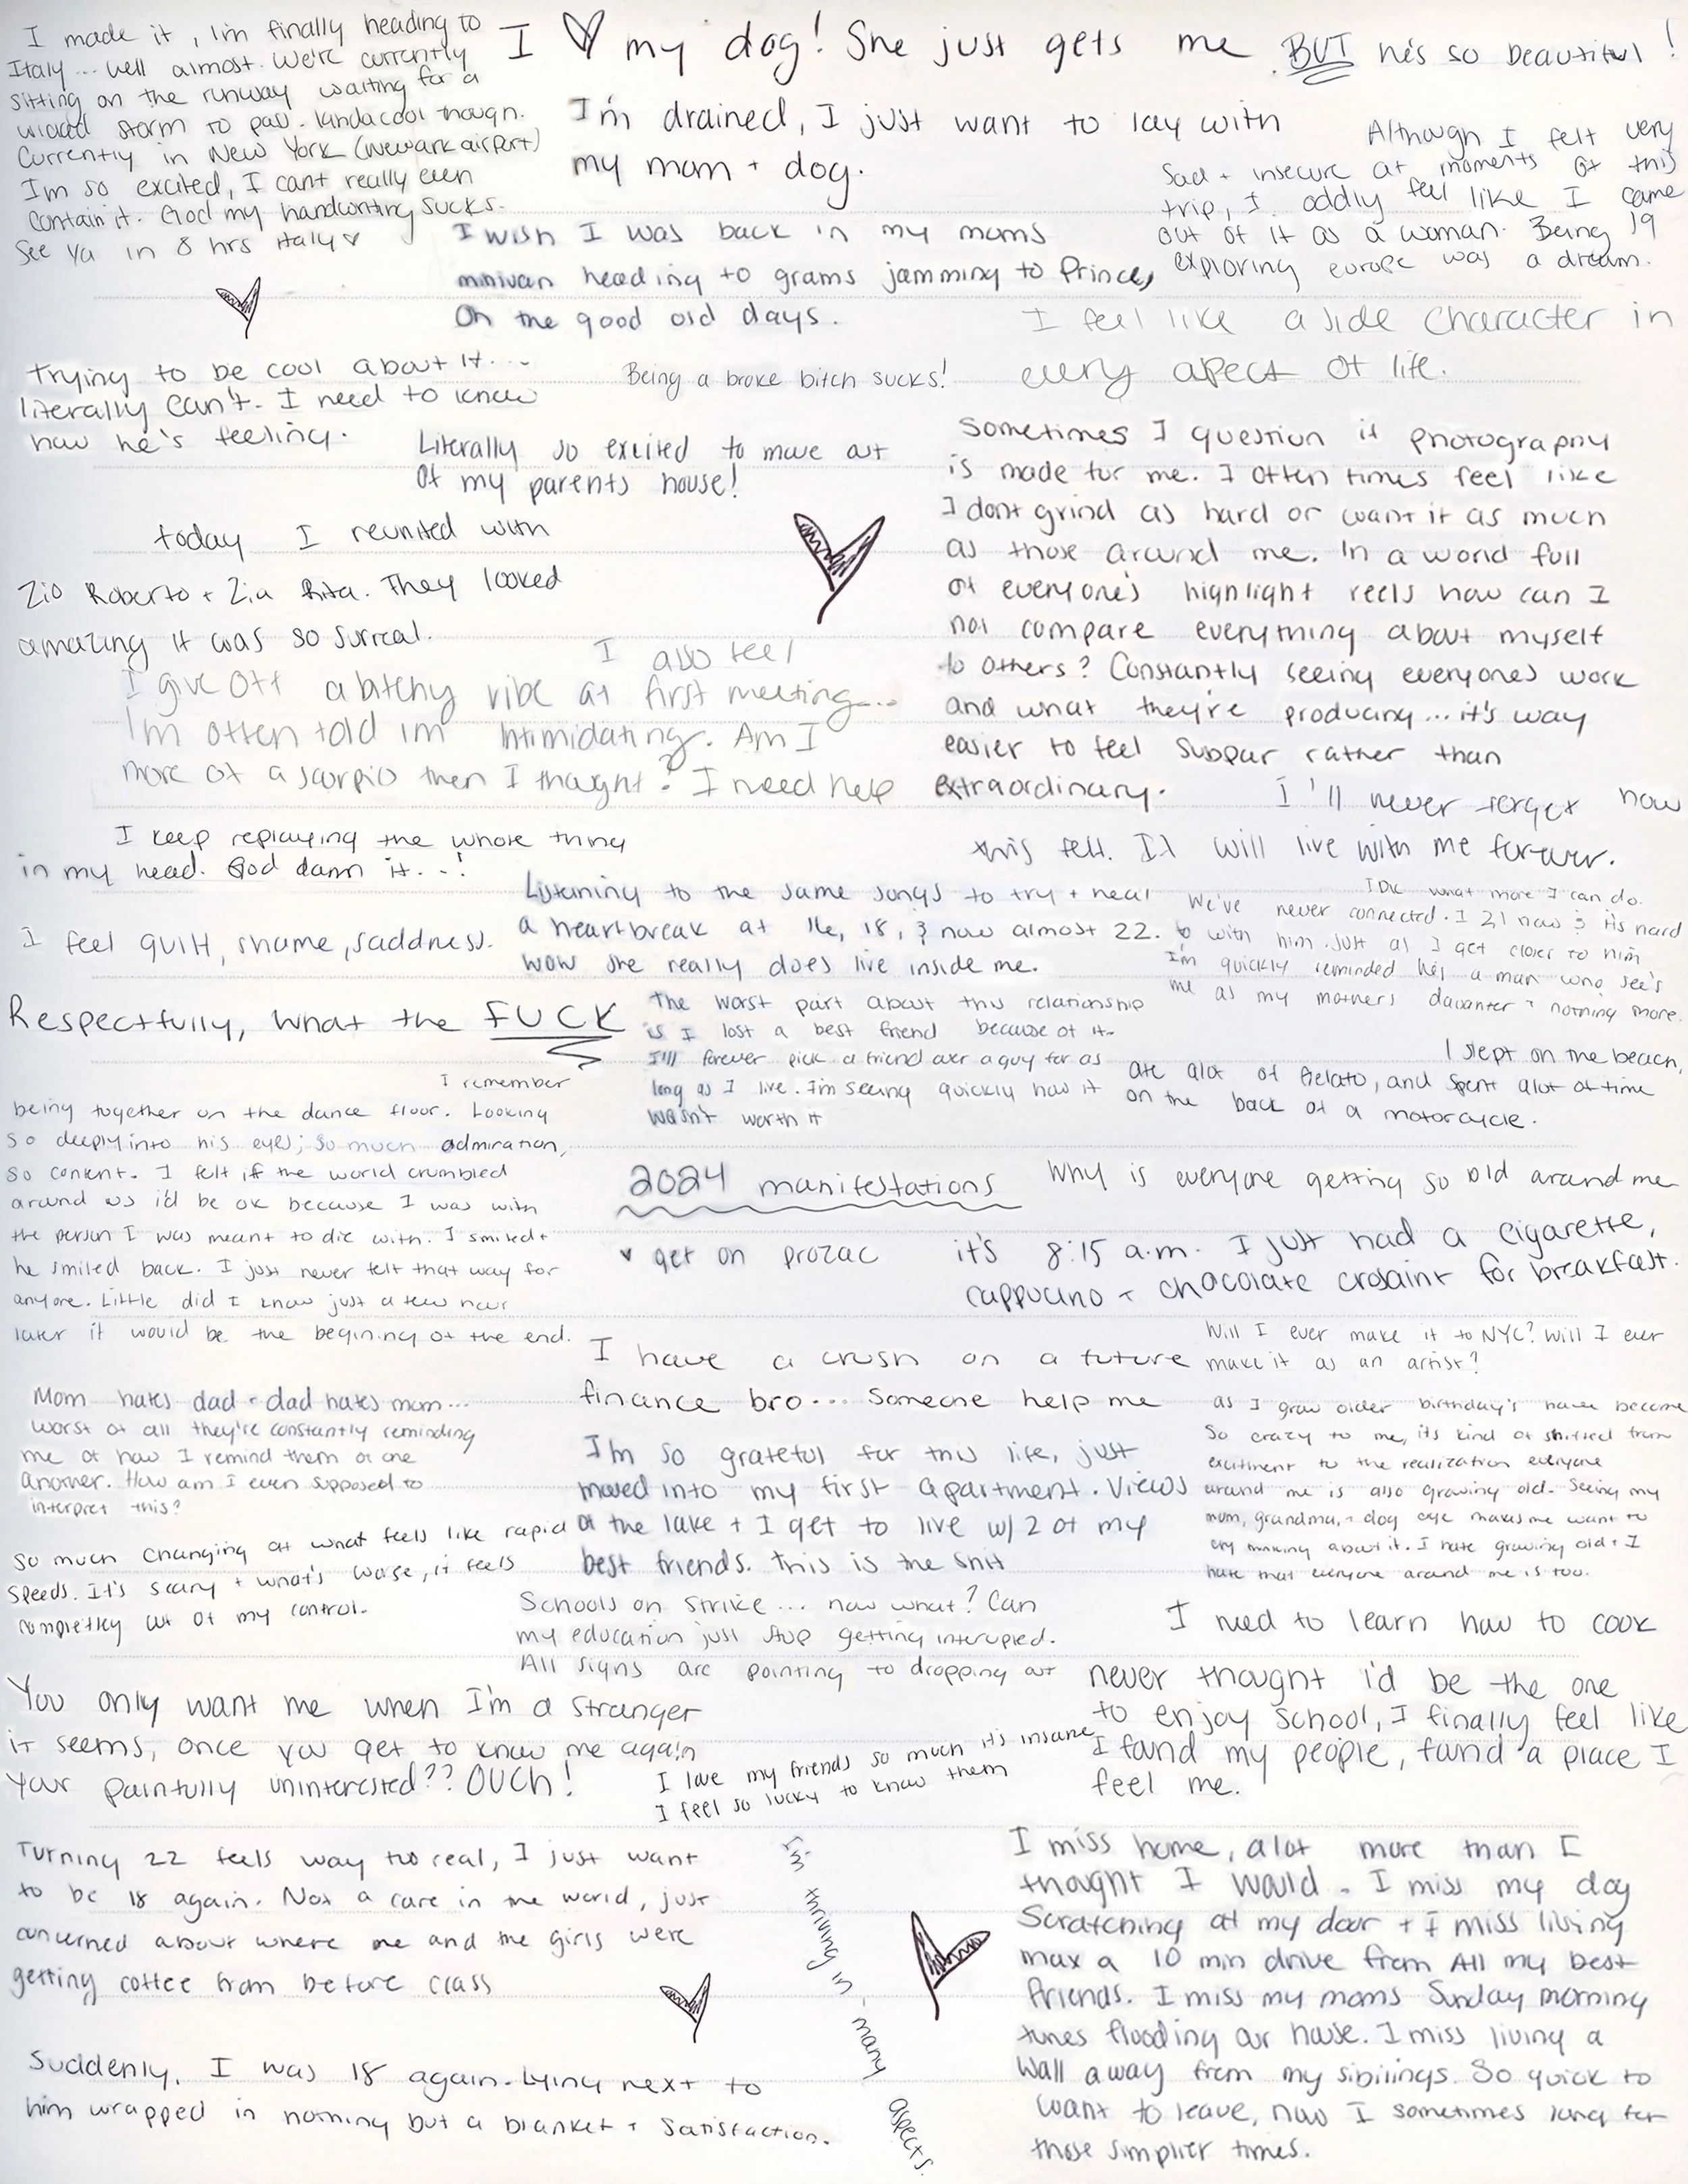 I made it, I'm finally heading to
Italy... well almost. We're currently
sitting on the runway waiting for a
wicked storm to pass. kinda cool though.
Currently in New York (Newark airport)
I'm so excited, I cant really even
contain it. God my handwriting sucks.
See ya in 8 hrs Italy ♥
I ♡ my dog! She just gets me
BUT he's so beautiful!
I'm drained, I just want to lay with
my mom + dog.
Although I felt very
sad + insecure at moments of this
trip, I oddly feel like I came
out of it as a woman. Being 19
exploring europe was a dream.
I wish I was back in my moms
minivan heading to grams jamming to Prince,
Oh the good old days.
I feel like a side character in
every apect of life.
Trying to be cool about it...
literally can't. I need to know
how he's feeling.
Being a broke bitch sucks!
Literally so excited to move out
of my parents house!
Sometimes I question if photography
is made for me. I often times feel like
I dont grind as hard or want it as much
as those around me. In a world full
of everyone's highlight reels how can I
not compare everything about myself
to others? Constantly seeing everyones work
and what they're producing... it's way
easier to feel subpar rather than
extraordinary.
today I reunited with
Zio Roberto + Zia Rita. They looked
amazing it was so surreal.
I also feel
I give off a bitchy vibe at first meeting...
I'm often told im intimidating. Am I
more of a scorpio then I thought? I need help
I'll never forget how
this felt. It will live with me forever.
I keep replaying the whole thing
in my head. God damn it...!
I feel guilt, shame, saddness.
Listening to the same songs to try + heal
a heartbreak at 16, 18, & now almost 22.
wow she really does live inside me.
IDK what more I can do.
We've never connected. I 21 now & its hard
with him. just as I get closer to him
I'm quickly reminded hes a man who see's
me as my mothers daughter + nothing more.
Respectfully, what the FUCK
The worst part about this relationship
is I lost a best friend because of it.
I'll forever pick a friend over a guy for as
long as I live. I'm seeing quickly how it
wasn't worth it
I slept on the beach,
ate alot of Gelato, and spent alot of time
on the back of a motorcycle.
I remember
being together on the dance floor. Looking
so deeply into his eyes; so much admiration,
so content. I felt if the world crumbled
around us i'd be ok because I was with
the person I was meant to die with. I smiled +
he smiled back. I just never felt that way for
anyone. Little did I know just a few hour
later it would be the begining of the end.
2024 manifestations
♥ get on prozac
Why is everyone getting so old around me
it's 8:15 a.m. I just had a cigarette,
cappucino + chocolate crosaint for breakfast.
Will I ever make it to NYC? Will I ever
make it as an artist?
I have a crush on a future
finance bro... Someone help me
Mom hates dad + dad hates mom...
worst of all they're constantly reminding
me of how I remind them of one
another. How am I even supposed to
interpret this?
as I grow older birthday's have become
So crazy to me, its kind of shifted from
excitment to the realization everyone
around me is also growing old. Seeing my
mom, grandma, + dog age makes me want to
cry thinking about it. I hate growing old + I
hate that everyone around me is too.
I'm so grateful for this life, just
moved into my first apartment. Views
of the lake + I get to live w/ 2 of my
best friends. this is the shit
So much changing at what feels like rapid
speeds. It's scary + what's worse, it feels
completley out of my control.
Schools on strike... now what? Can
my education just stop getting interupied.
All signs are pointing to dropping out
I need to learn how to cook
You only want me when I'm a stranger
it seems, once you get to know me again
your painfully uninterested?? OUCH!
I love my friends so much it's insane
I feel so lucky to know them
never thought i'd be the one
to enjoy school, I finally feel like
I found my people, found a place I
feel me.
Turning 22 feels way too real, I just want
to be 18 again. Not a care in the world, just
concerned about where me and the girls were
getting coffee from before class
I'm thriving in - many aspects.
I miss home, alot more than I
thought I would. I miss my dog
scratching at my door + I miss living
max a 10 min drive from All my best
friends. I miss my moms Sunday morning
tunes flooding our house. I miss living a
wall away from my sibilings. So quick to
want to leave, now I sometimes long for
those simplier times.
Suddenly, I was 18 again. Lying next to
him wrapped in nothing but a blanket + satisfaction.